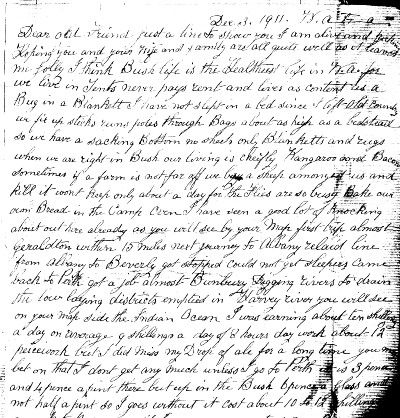 Dec 3. 1911. W. A
Dear old Friend just a line to show you I am alive and
Hoping you and your Wife and family are all quite well as it leaves
me jolly I think Bush life is the Healthiest life in W.A. for
we live in Tents never pays rent and lives as content as a
Bug in a Blankett I have not slept in a bed since I left old Country
we fix up sticks runs poles through Bags about as high as a bedstead
so we have a sacking Bottom no sheets only Blanketts and rugs
when we are right in Bush our living is cheifly Kangaroo and Bacon
sometimes if a farm is not far off we buy a sheep among us and
kill it wont keep only about a day for the Flies are so busy Bake our
own Bread in the Camp Oven I have seen a good lot of Knocking
about out here already as you will see by your Map first trip almost
Geraldton within 15 miles next journey to Albany relaid line
from Albany to Beverly got stopped could not get sleepers came
back to Perth got a job almost Bunbury Digging rivers to drain
the low laying districts emptied in Harvey river you will see
on your map side the Indian Ocean I was earning about ten shillings
a day on average 9 shillings a day of 8 hours day work about 12
piecework but I did miss my Drop of ale for a long time you may
bet on that I dont get any much unless I go to Perth it is 3 pence
and 4 pence a pint there but up in the Bush 6 pence a glass and
not half a pint so I goes without it cost about 10 to 12 shillings